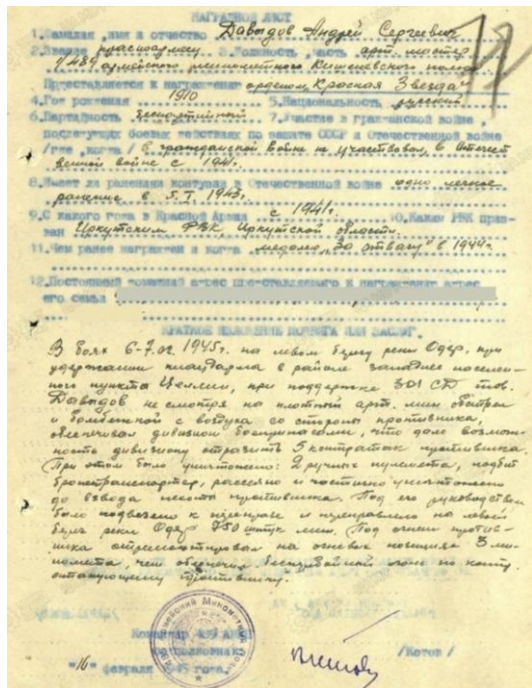 НАГРАДНОЙ ЛИСТ
1. Фамилия, имя и отчество Давыдов Андрей Сергеевич
2. Звание красноармеец 3. Должность, часть арт. мастер
489 армейского минометного Кишеневского полка
Представляется к награждению орденом „Красная Звезда"
4. Год рождения 1910 5. Национальность русский
6. Партийность беспартийный 7. Участие в гражданской войне,
последующих боевых действиях по защите СССР и Отечественной войне
/где, когда/ в гражданской войне не участвовал, в Отечест
венной войне с 1941г.
8. Имеет ли ранения и контузии в Отечественной войне одно легкое
ранение в 1943г.
9. С какого года в Красной Армии с 1941г. 10. Каким РВК приз-
ван Иркутским РВК Иркутской области
11. Чем ранее награжден и когда медалью „За отвагу" в 1944г.
12. Постоянный домашний адрес представляемого к награждению адрес
его семьи
КРАТКОЕ ИЗЛОЖЕНИЕ ПОДВИГА ИЛИ ЗАСЛУГ.
В боях 6-7.02.1945г. на левом берегу реки Одер, при
удержании плацдарма в районе западнее населен-
ного пункта при поддержке 301 СД тов.
Давыдов не смотря на плотный арт. мин обстрел
и бомбежкой с воздуха со стороны противника,
обеспечивал дивизион боеприпасами, что дало возмож-
ность дивизиону отразить 5 контратак противника.
При этом было уничтожено: 2 ручных пулемета, подбит
бронетранспортер, рассеяно и частично уничтожено
до взвода пехоты противника. Под его руководством
было подвезено к переправе и переправлено на левый
берег реки Одер 750 штук мин. Под огнем против-
ника отремонтировал на огневых позициях 3 ми-
номета, чем обеспечил бесперебойный огонь по контр.
атакующему противнику.
Командир 489 АМКП
подполковник /Котов/
"16" февраля 1945 года.